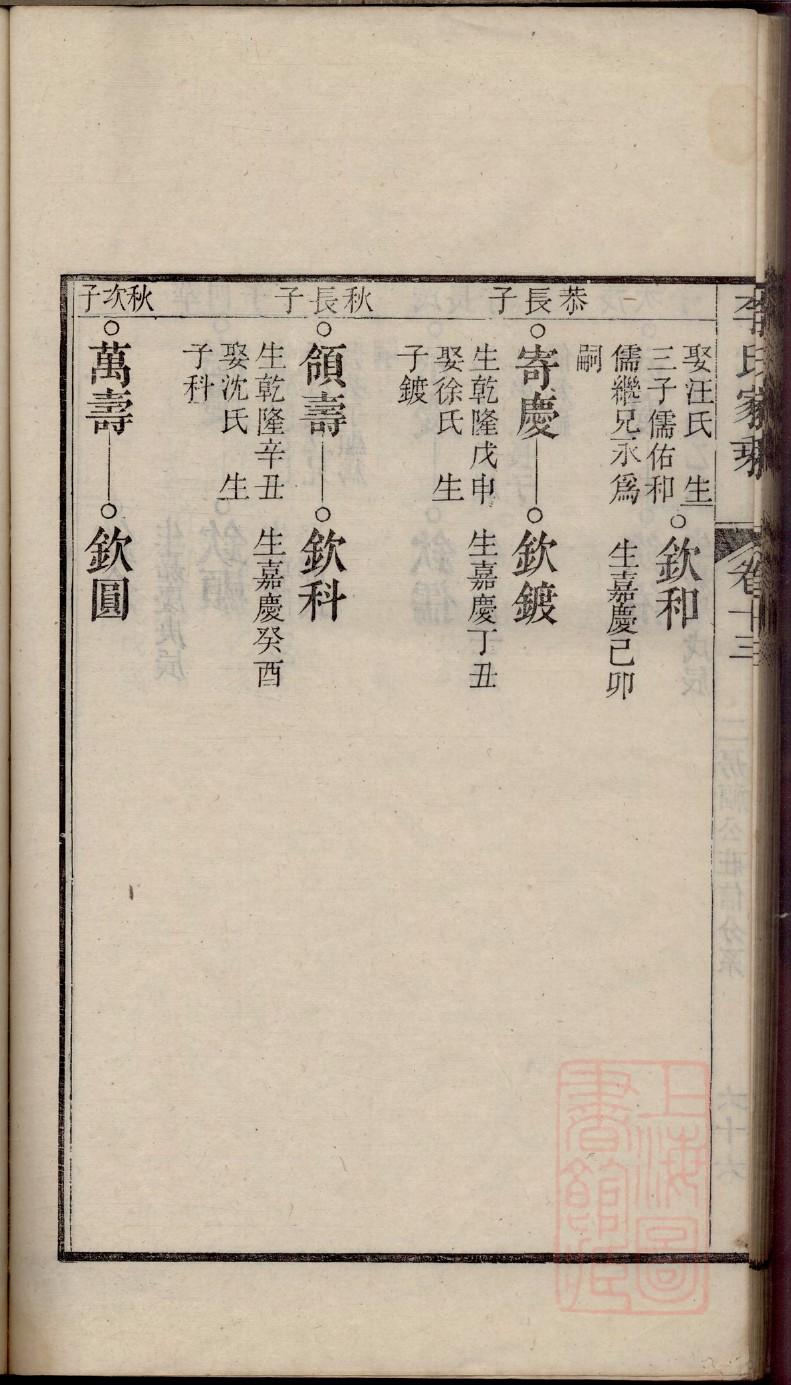 李氏家乘
卷十三
娶汪氏　生
三子儒佑和
儒繼兄永爲
嗣
欽和
生嘉慶己卯
恭長子
寄慶
生乾隆戊申
娶徐氏　生
子鍍
欽鍍
生嘉慶丁丑
秋長子
領壽
生乾隆辛丑
娶沈氏　生
子科
欽科
生嘉慶癸酉
秋次子
萬壽
欽圓
上海圖
書館藏